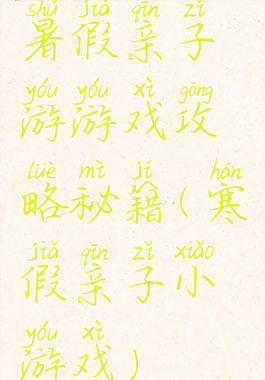 shǔ jiǎ qīn zǐ
暑假亲子
yóu yóu xì gōng
游游戏攻
lüè mì jí hán
略秘籍(寒
jiǎ qīn zǐ xiǎo
假亲子小
yóu xì
游戏)